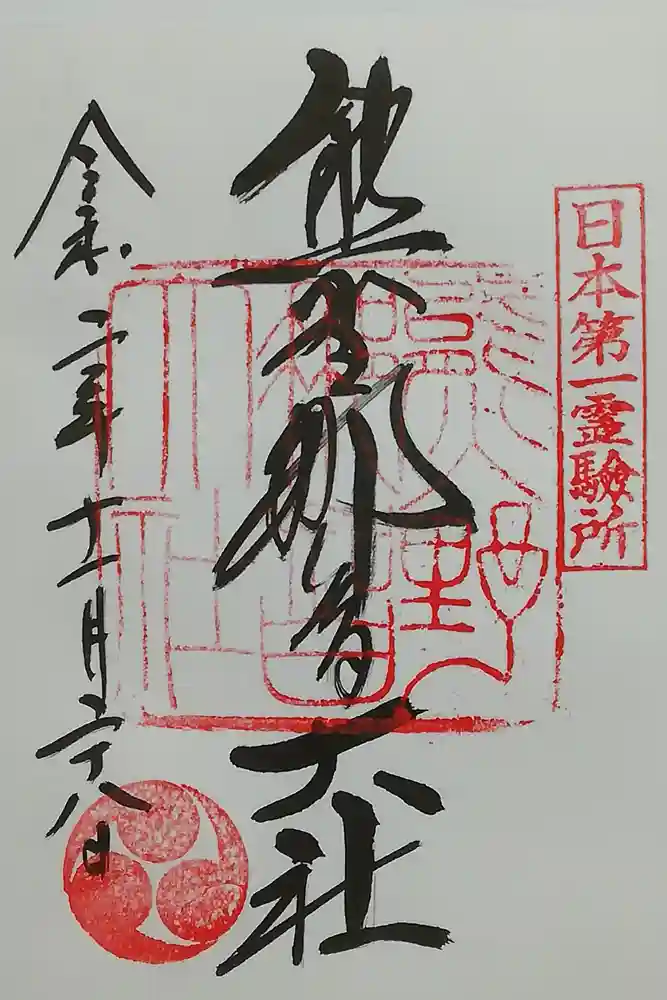 日本第一霊驗所
熊野
熊野那智大社
令和二年十一月二十八日